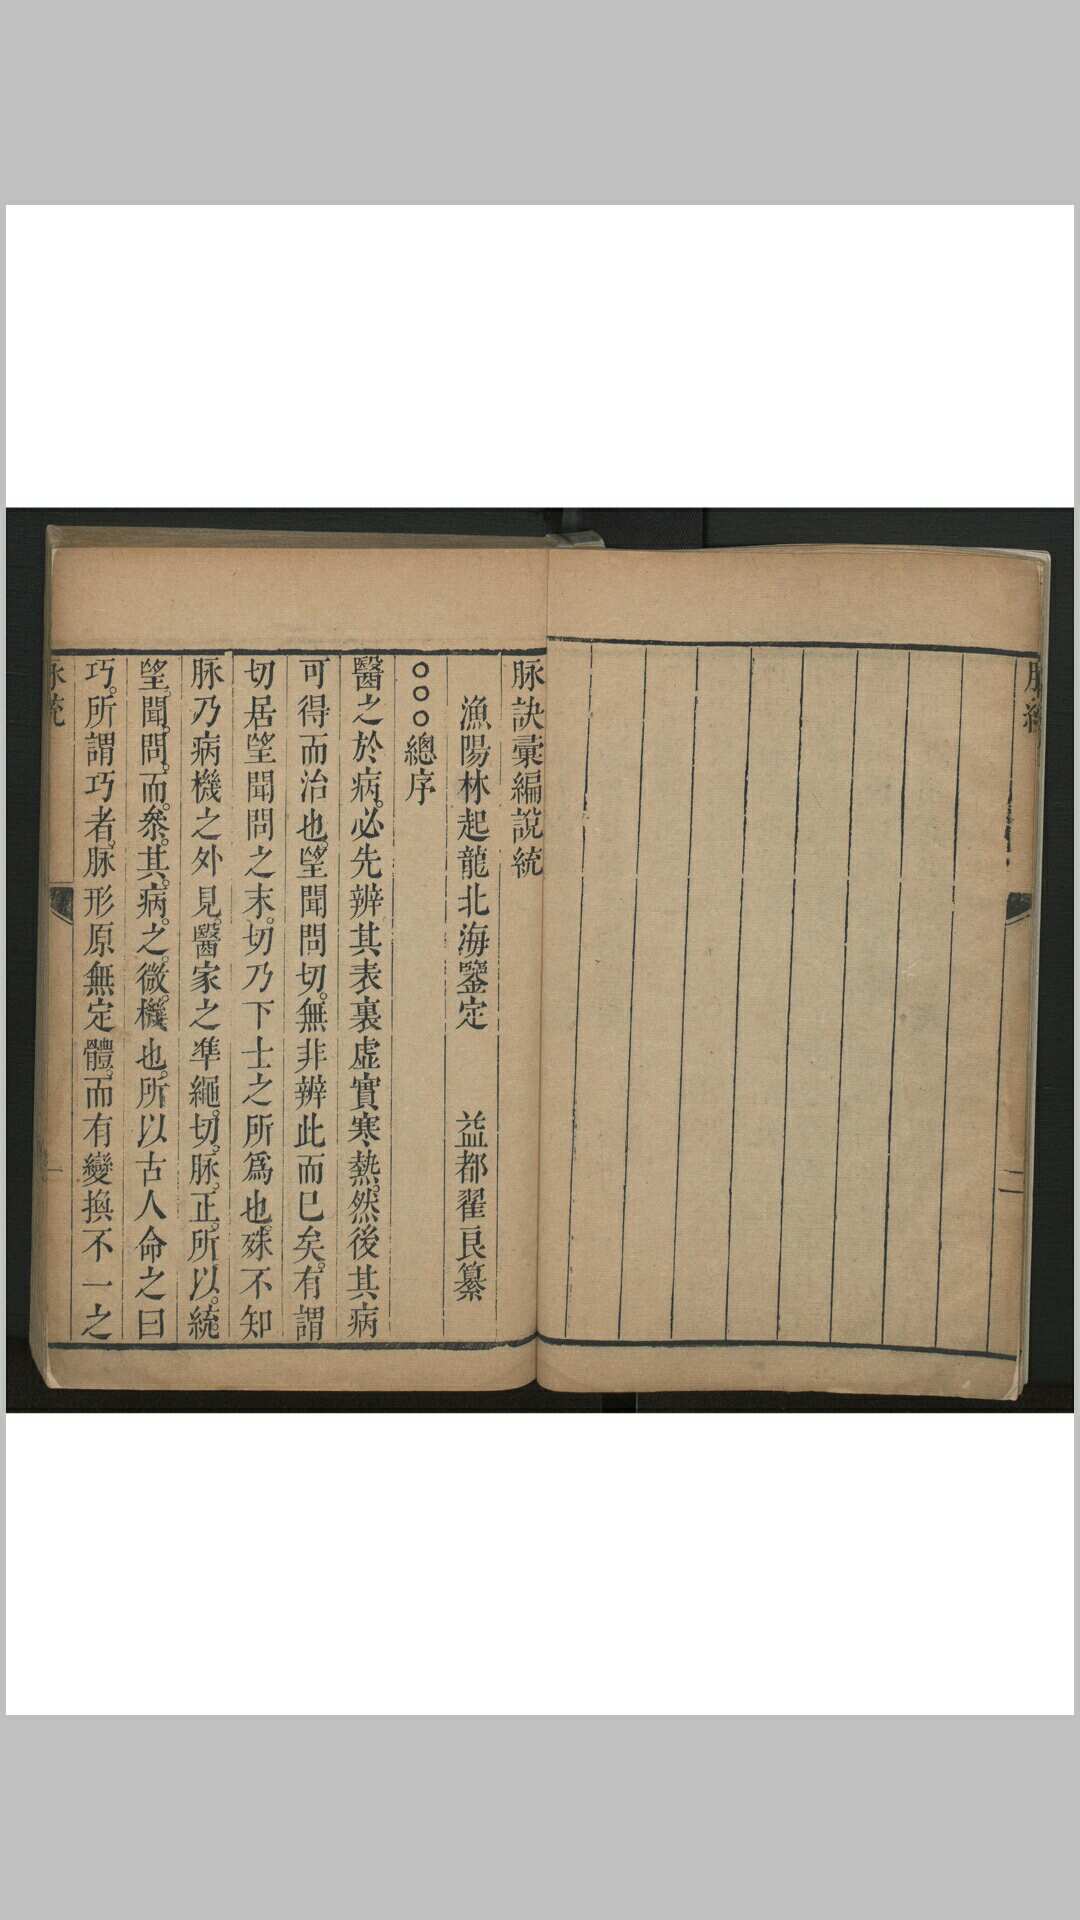 二
脉訣彙編說統
漁陽林起龍北海鑒定 益都翟良纂
○○○總序
醫之於病。必先辨其表裏虛實寒熱。然後其病
可得而治也。望聞問切。無非辨此而已矣。有謂
切居望聞問之末。切乃下士之所爲也。殊不知
脉乃病機之外見。醫家之準繩。切。脉。正。所。以。統。
望。聞。問。而。叅。其。病。之。微。機。也。所以古人命之曰
巧。所謂巧者。脉形原無定體。而有變換不一之
脉統
一